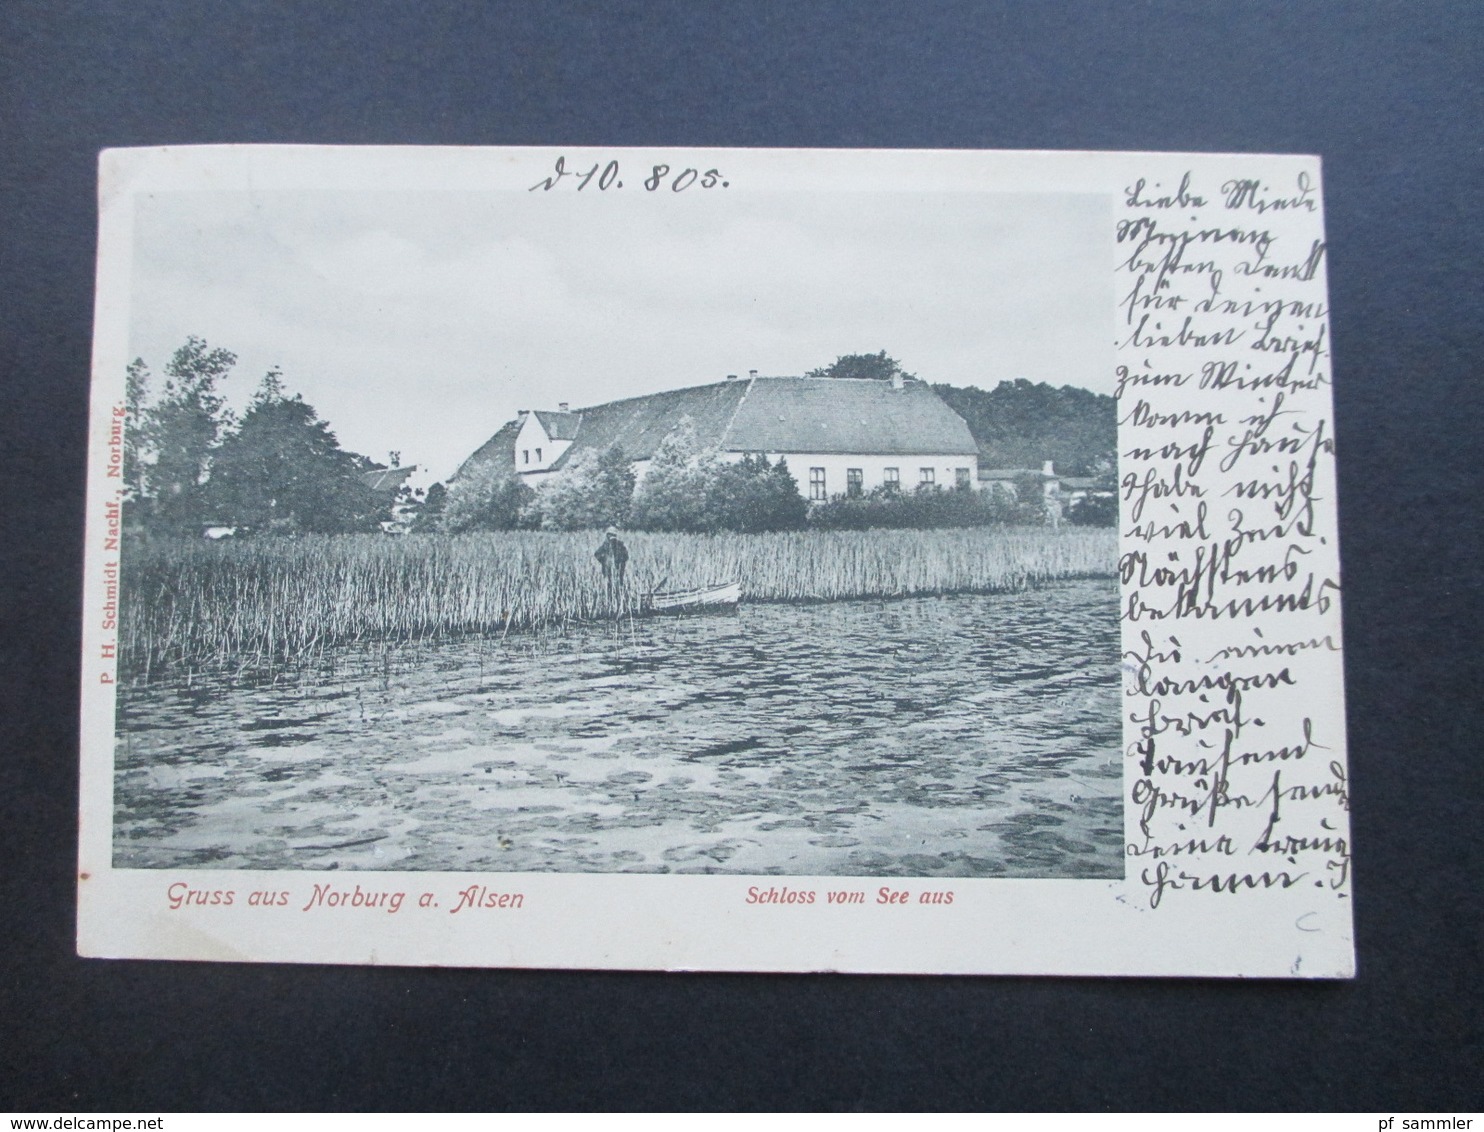 d 10. 8 05.
Liebe Minde
Meinen
besten Dank
für Deinen
lieben Brief.
zum Winter
komm ich
nach Hause
Habe nicht
viel Zeit.
Nächstens
bekommts
Du einen
langen
Brief.
Tausend
Grüße sendet
Deine treue
Hanni.
P. H. Schmidt Nachf., Norburg.
Gruss aus Norburg a. Alsen
Schloss vom See aus
pf sammler
www.delcampe.net